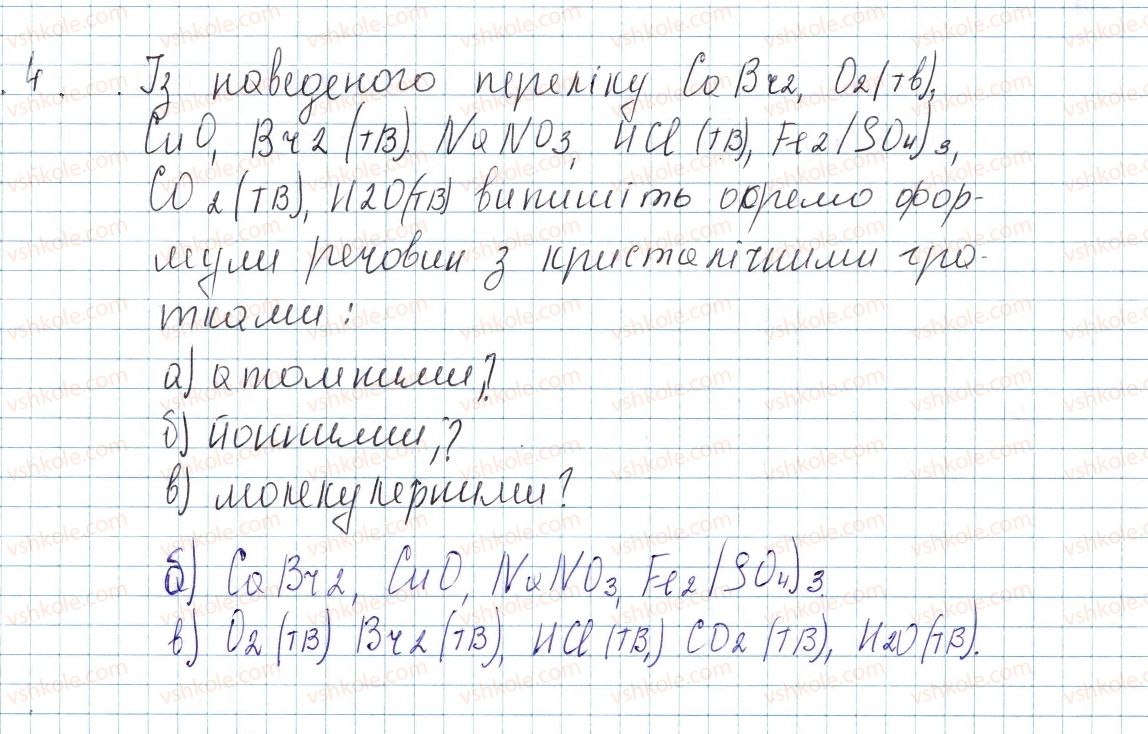 4. Із наведеного переліку CaBr2, O2(тв),
CuO, Br2(тв). NaNO3, HCl(тв), Fe2(SO4)3,
CO2(тв), H2O(тв) випишіть окремо фор-
мули речовин з кристалічними гра-
тками:
а) атомними,?
б) йонними,?
в) молекулярними?
б) CaBr2, CuO, NaNO3, Fe2(SO4)3.
в) O2(тв) Br2(тв), HCl(тв,) CO2(тв), H2O(тв).